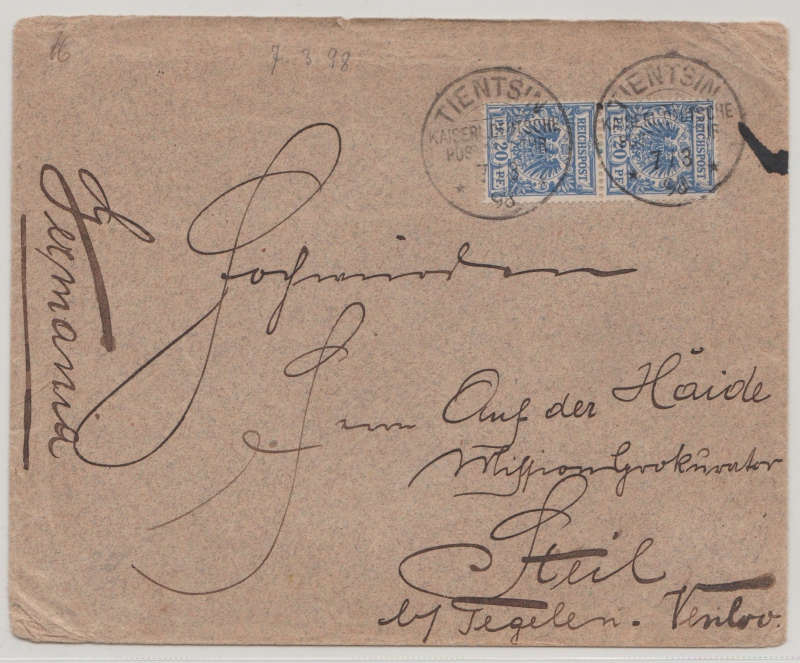 7. 3. 98
TIENTSIN
KAISERL. DEUTSCHE
POST
7 3
98
TIENTSIN
KAISERL. DEUTSCHE
7 3
98
REICHSPOST
20 PF.
REICHSPOST
20 PF.
Germania
Hochwürden
Herrn Auf der Häide
Missionsprokurator
Steil
b/ Tegelen. Venloo.